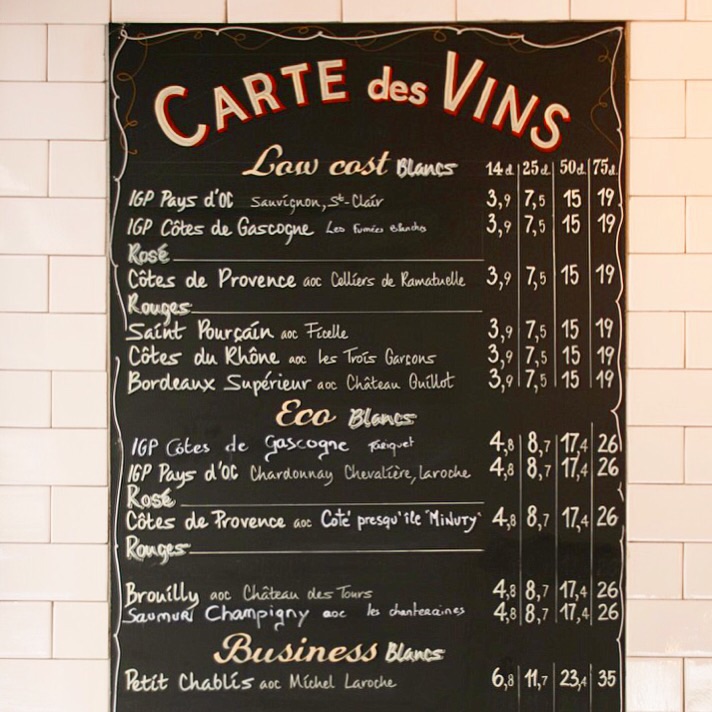 CARTE des VINS
Low cost Blancs 14 cl. 25 cl. 50 cl. 75 cl.
IGP Pays d'OC Sauvignon, St-Clair 3,9 7,5 15 19
IGP Côtes de Gascogne Les fumées blanches 3,9 7,5 15 19
Rosé
Côtes de Provence aoc Celliers de Ramatuelle 3,9 7,5 15 19
Rouges
Saint Pourçain aoc Ficelle 3,9 7,5 15 19
Côtes du Rhône aoc les Trois Garçons 3,9 7,5 15 19
Bordeaux Supérieur aoc Château Guillot 3,9 7,5 15 19
Eco Blancs
IGP Côtes de Gascogne Tariquet 4,8 8,7 17,4 26
IGP Pays d'OC Chardonnay Chevalière, Laroche 4,8 8,7 17,4 26
Rosé
Côtes de Provence aoc Coté presqu'ile "MINUTY" 4,8 8,7 17,4 26
Rouges
Brouilly aoc Château des Tours 4,8 8,7 17,4 26
SAUMUR Champigny aoc les chanteraines 4,8 8,7 17,4 26
Business Blancs
Petit Chablis aoc Michel Laroche 6,8 11,7 23,4 35